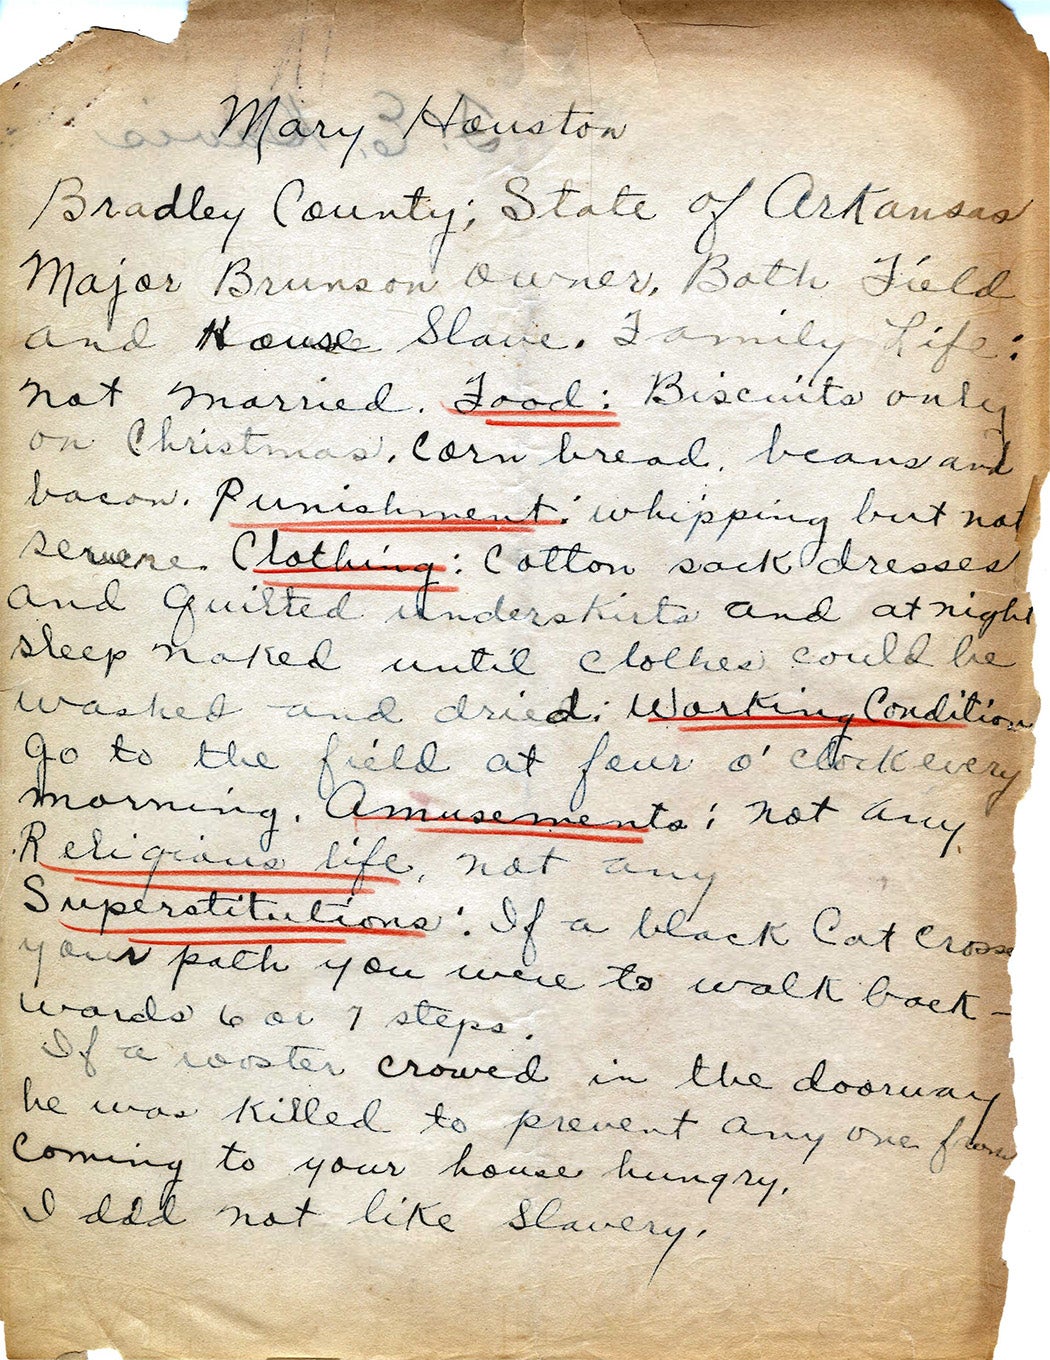 Mary Houston
Bradley County; State of Arkansas
Major Brunson owner. Both Field
and House Slave. Family Life:
not married. Food: Biscuits only
on Christmas. Corn bread, beans and
bacon. Punishment: whipping but not
severe. Clothing: Cotton sack dresses
and Quilted underskirts and at night
sleep naked until clothes could be
washed and dried: Working Condition
Go to the field at four o'clock every
morning. Amusements: not any.
Religious life, not any
Superstitutions: If a black Cat cross
your path you were to walk back-
wards 6 or 7 steps.
If a rooster crowed in the doorway
he was killed to prevent any one from
coming to your house hungry.
I did not like Slavery.